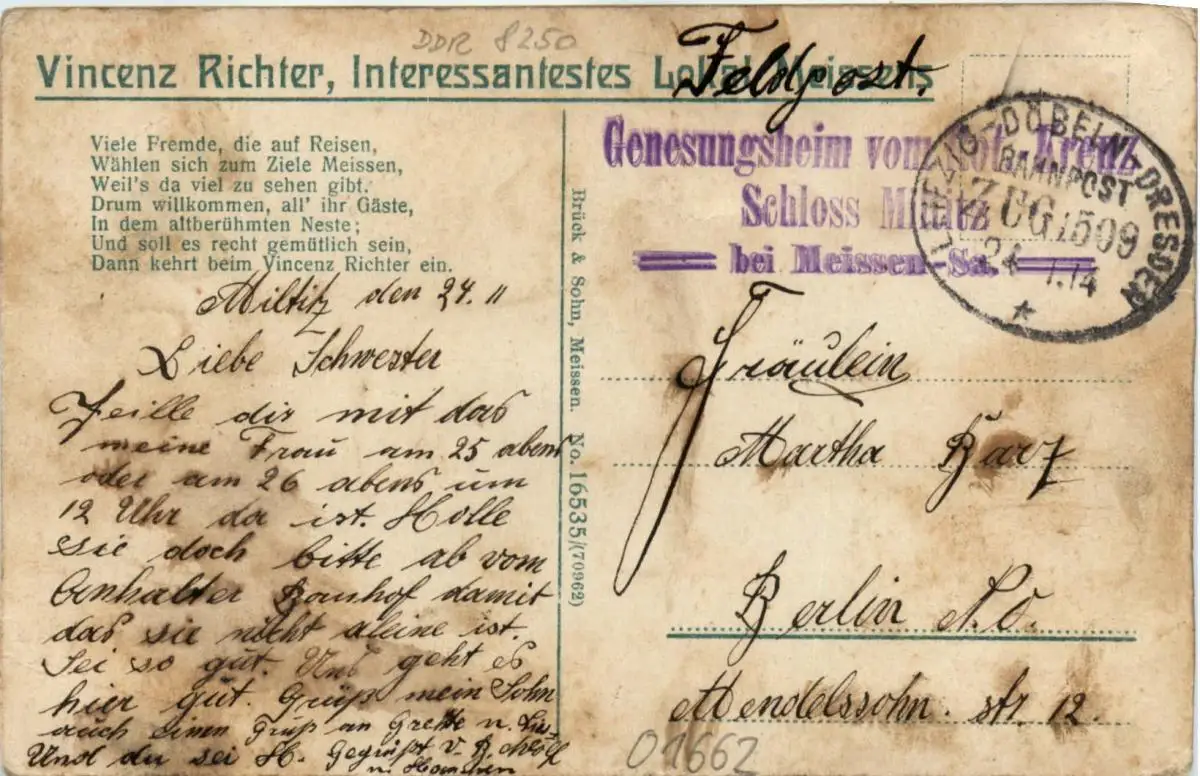 DDR 8250
Vincenz Richter, Interessantestes Lokal Meissens
Feldpost.
Viele Fremde, die auf Reisen,
Wählen sich zum Ziele Meissen,
Weil's da viel zu sehen gibt.
Drum willkommen, all' ihr Gäste,
In dem altberühmten Neste;
Und soll es recht gemütlich sein,
Dann kehrt beim Vincenz Richter ein.
Genesungsheim vom Rot. Kreuz
Schloss Miltitz
bei Meissen-Sa.
LEIPZIG-DÖBELN-DRESDEN
BAHNPOST
ZUG 1509
24 14
Miltitz den 24. 11
Liebe Schwester
Teille dir mit das
meine Frau am 25 abens
oder am 26 abens um
12 Uhr da ist. Holle
sie doch bitte ab vom
Anhalter Banhof damit
das sie nicht aleine ist.
Sei so gut. Uns geht es
hier gut. Grüß mein Sohn
auch einen Gruß an Grette u.
Und du sei H. Gegrüßt v.
Brück & Sohn, Meissen. No. 16535/(70962)
Fräulein
Martha
Berlin N.O.
Mendelssohn. str. 12.
01662